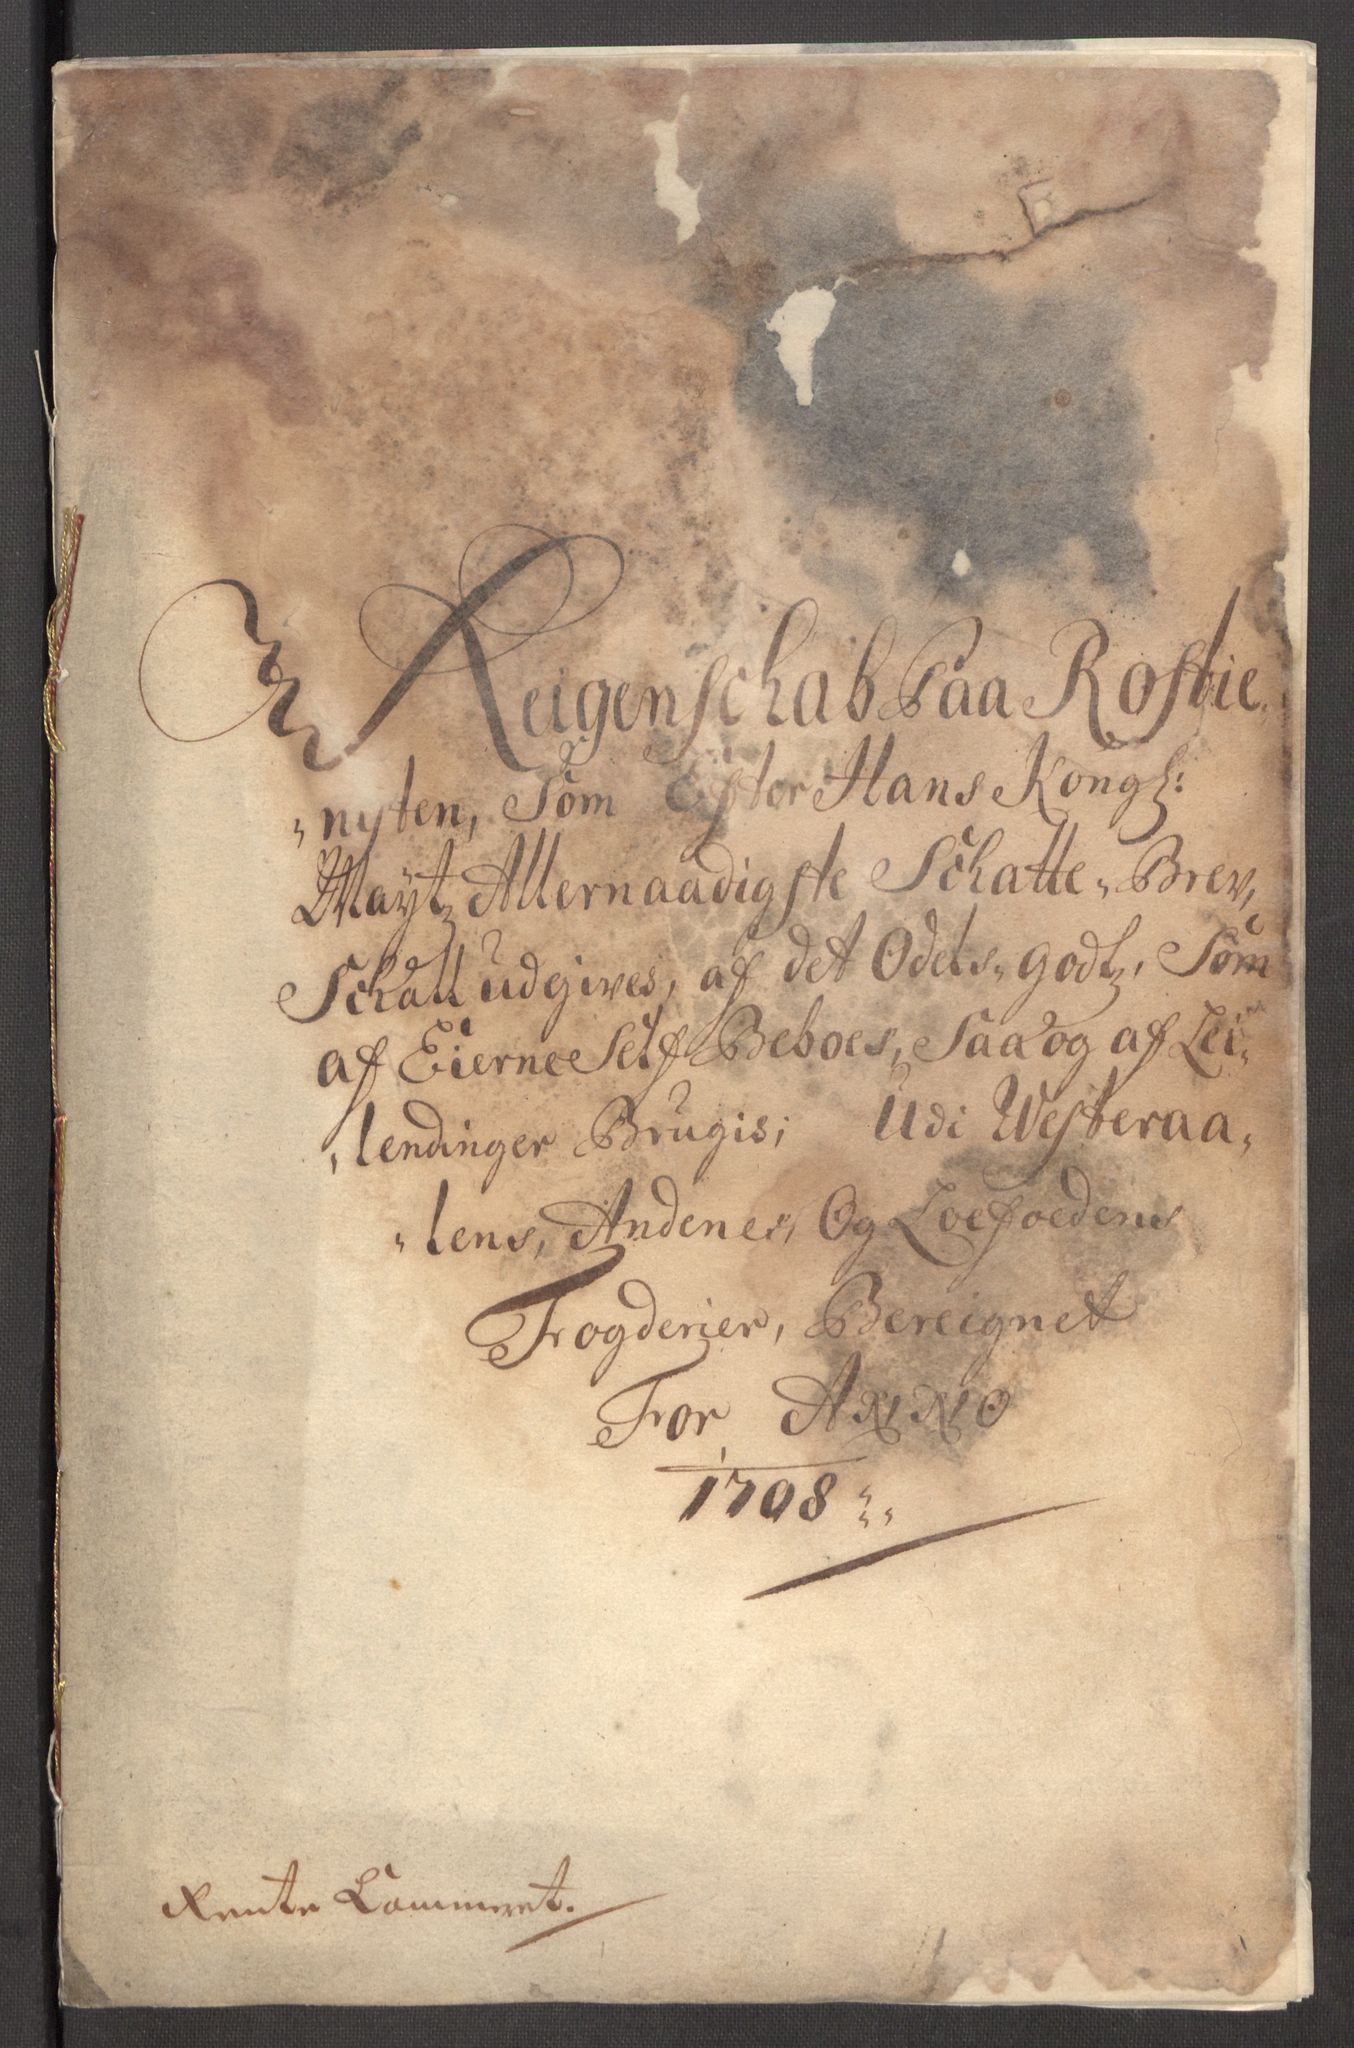 Reigenschab Paa Rostie-
-nyten, Som Efter Hans Kongl:
Mayt Allernaadigste Schatte-Brev,
Schall udgives, af det Odels-godtz, Som
af Eierne Self Beboes, Saa og af Lei-
-lendinger Brugis; Udi Westeraa-
-lens, Andenes, Og Loefoedens
Fogderier, Bereignet
For ANNO
1708
Rente Cammeret.